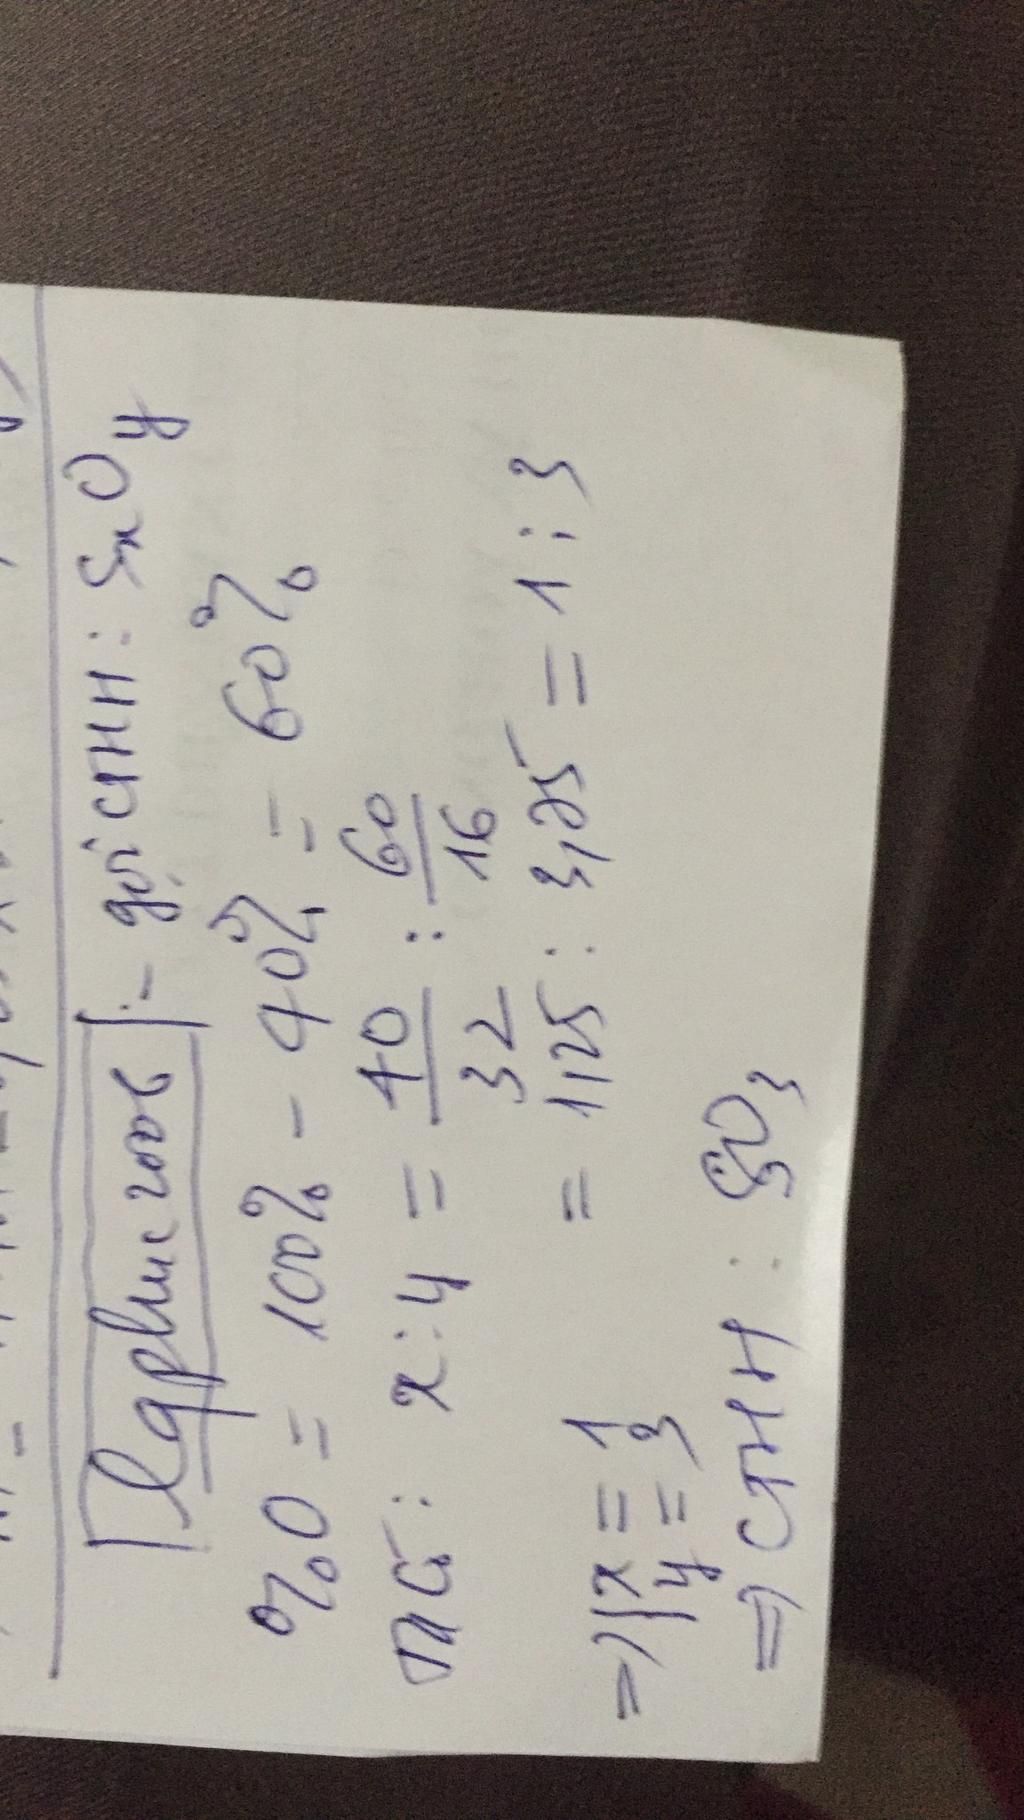 - gọi CTHH: SxOy
%O = 100% - 40% = 60%
Ta có: x:y = 40/32 : 60/16
= 1,25 : 3,25 = 1:3
=> { x = 1
y = 3
=> CTHH : SO3